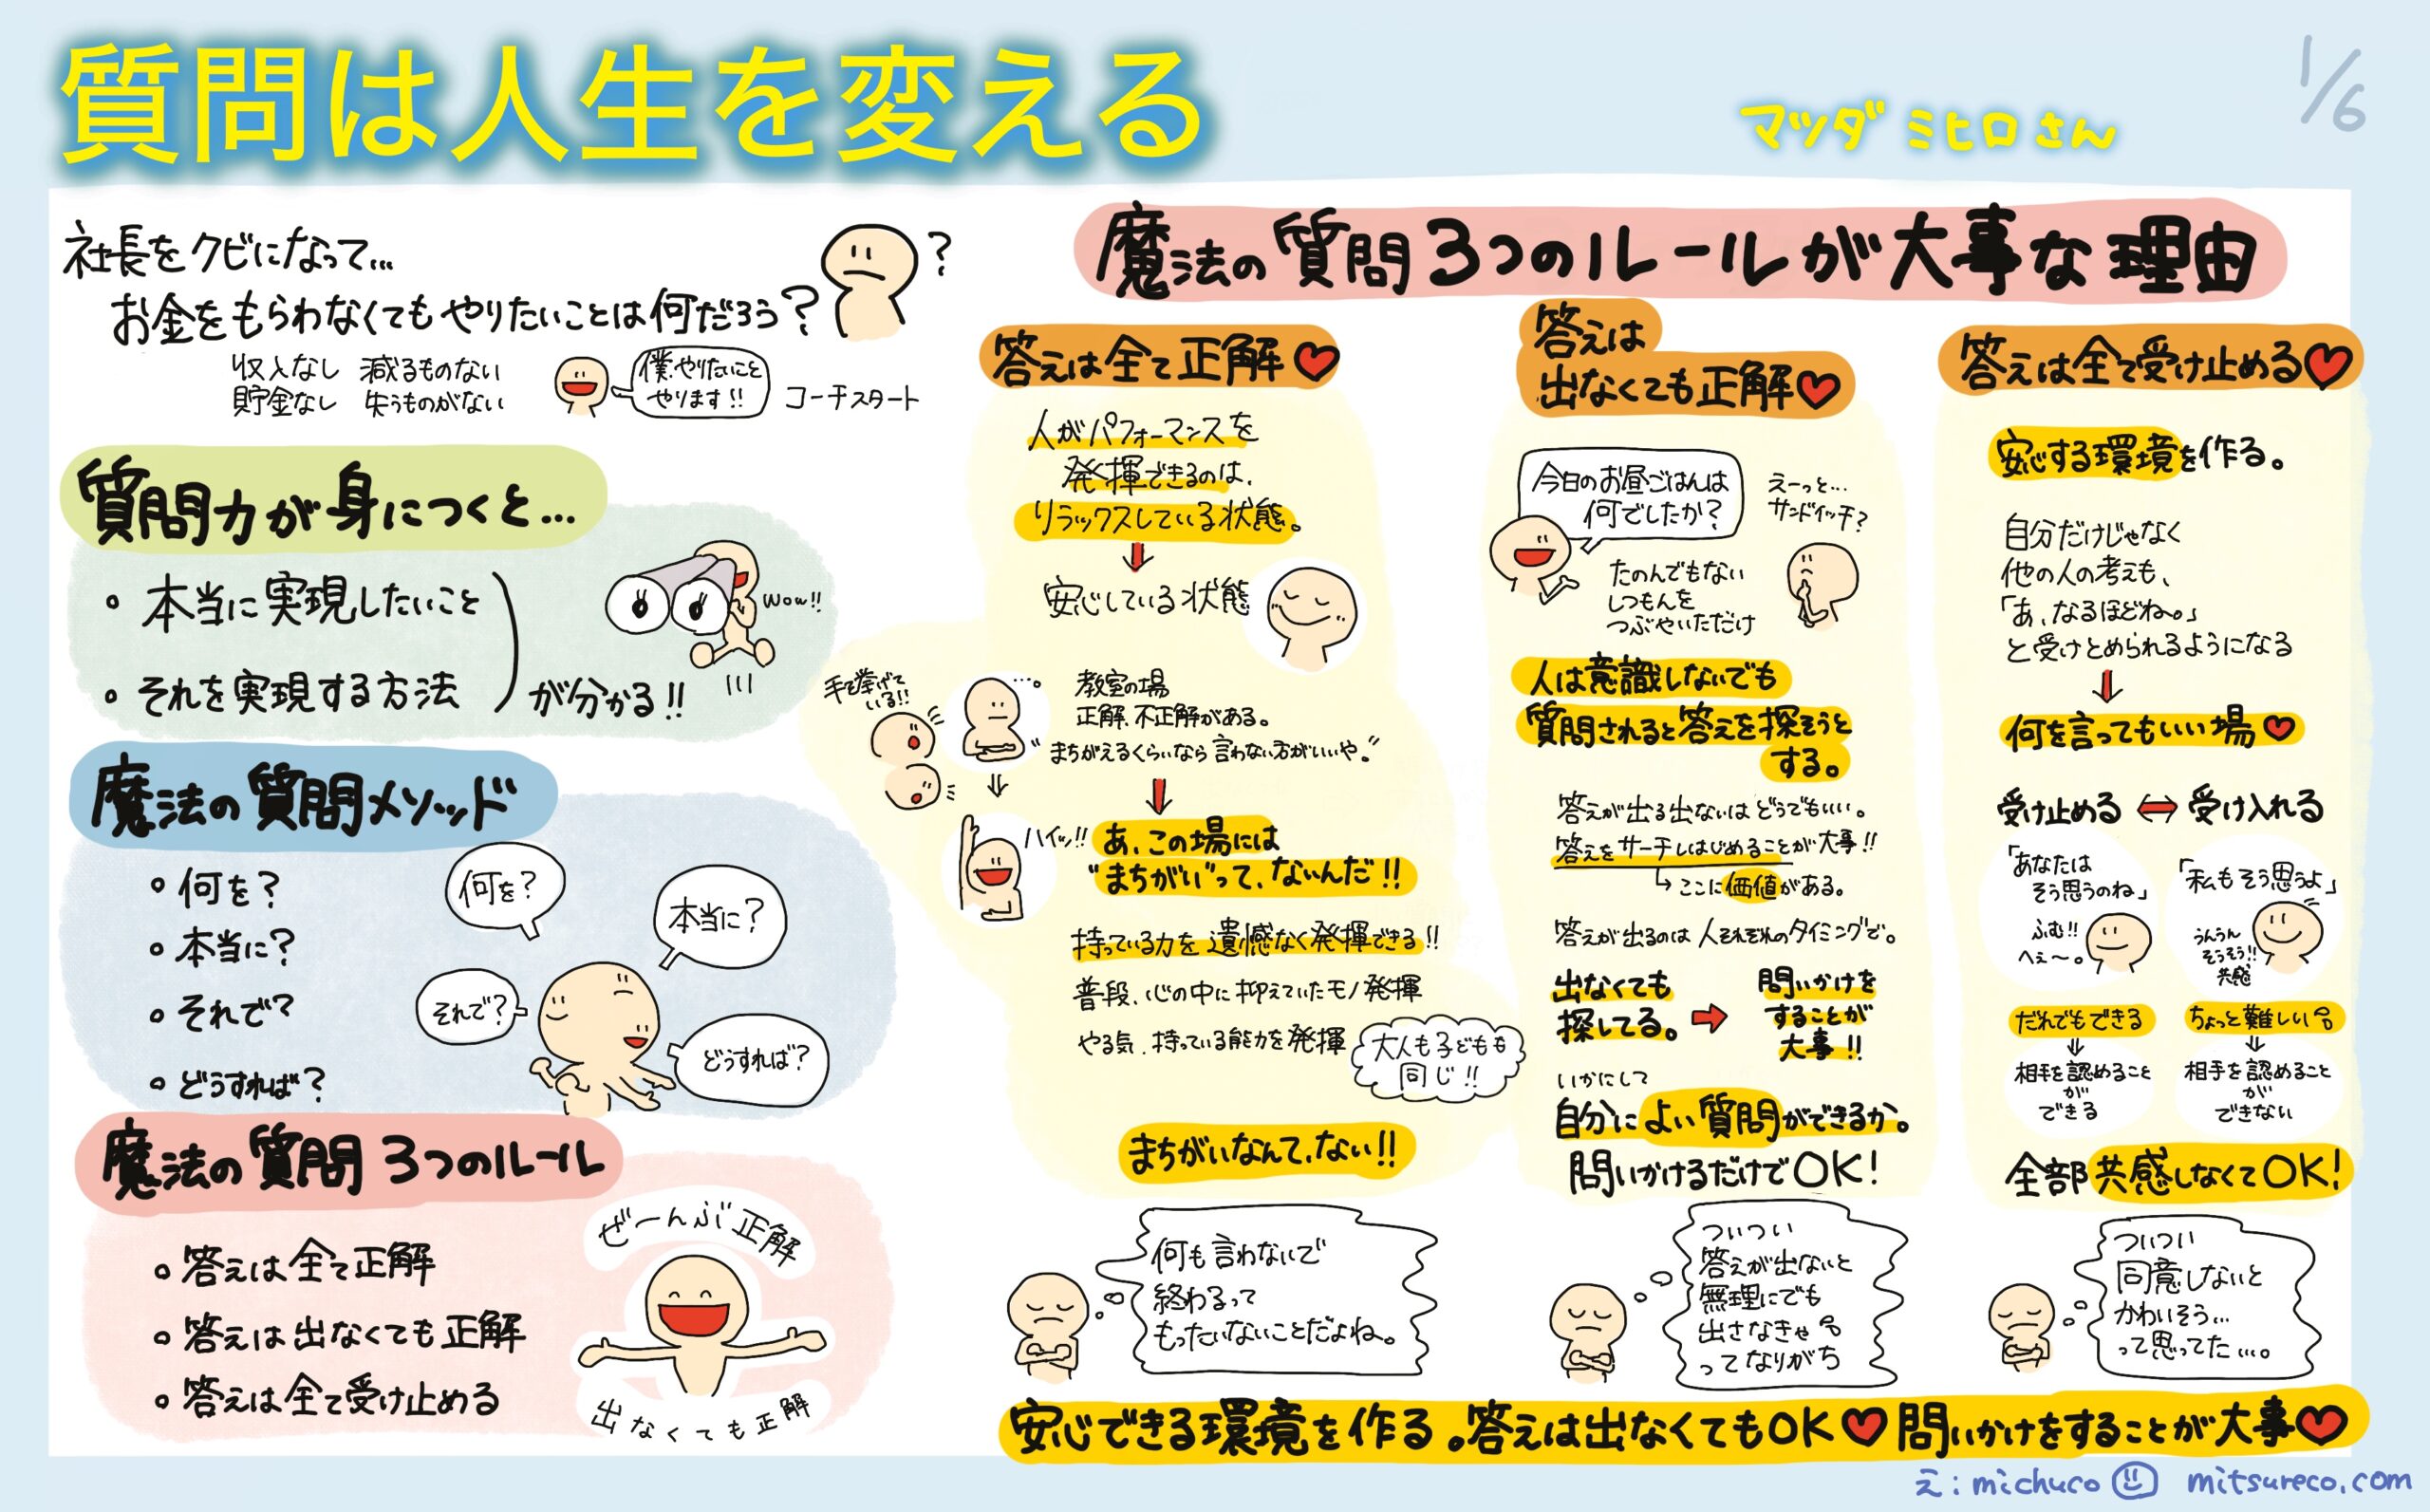 質問は人生を変える
マツダミヒロさん
1/6
社長をクビになって…
お金をもらわなくてもやりたいことは何だろう?
?
収入なし 減るものない
貯金なし 失うものがない
僕、やりたいこと
やります!!
コーチスタート
質問力が身につくと…
・本当に実現したいこと
・それを実現する方法
が分かる!!
Wow!!
魔法の質問メソッド
・何を?
・本当に?
・それで?
・どうすれば?
何を?
本当に?
それで?
どうすれば?
魔法の質問3つのルール
・答えは全て正解
・答えは出なくても正解
・答えは全て受け止める
ぜーんぶ正解
出なくても正解
魔法の質問3つのルールが大事な理由
答えは全て正解♥
人がパフォーマンスを
発揮できるのは、
リラックスしている状態。
↓
安心している状態
手を挙げて
いる!!
…。
教室の場
正解、不正解がある。
"まちがえるくらいなら言わない方がいいや。"
ハイッ!!
あ、この場には
"まちがい"って、ないんだ!!
持っている力を遺憾なく発揮できる!!
普段、心の中に抑えていたモノ発揮
やる気、持っている能力を発揮
大人も子どもも
同じ!!
まちがいなんて、ない!!
何も言わないで
終わるって
もったいないことだよね。
答えは
出なくても正解♥
今日のお昼ごはんは
何でしたか?
えーっと…
サンドイッチ?
たのんでもない
しつもんを
つぶやいただけ
人は意識しないでも
質問されると答えを探そうと
する。
答えが出る出ないはどうでもいい。
答えをサーチしはじめることが大事!!
↳ここに価値がある。
答えが出るのは人それぞれのタイミングで。
出なくても
探してる。
➡
問いかけを
することが
大事!!
いかにして
自分によい質問ができるか。
問いかけるだけでOK!
ついつい
答えが出ないと
無理にでも
出さなきゃ
ってなりがち
答えは全て受け止める♥
安心する環境を作る。
自分だけじゃなく
他の人の考えも、
「あ、なるほどね。」
と受けとめられるようになる
↓
何を言ってもいい場♥
受け止める ⇔ 受け入れる
「あなたは
そう思うのね」
ふむ!!
へぇ〜。
「私もそう思うよ」
うんうん
そうそう!!
共感
だれでもできる
⇓
相手を認めること
が
できる
ちょっと難しい
⇓
相手を認めること
が
できない
全部共感しなくてOK!
ついつい
同意しないと
かわいそう…
って思ってた…。
安心できる環境を作る。答えは出なくてもOK♥問いかけをすることが大事♥
え:michuco mitsureco.com